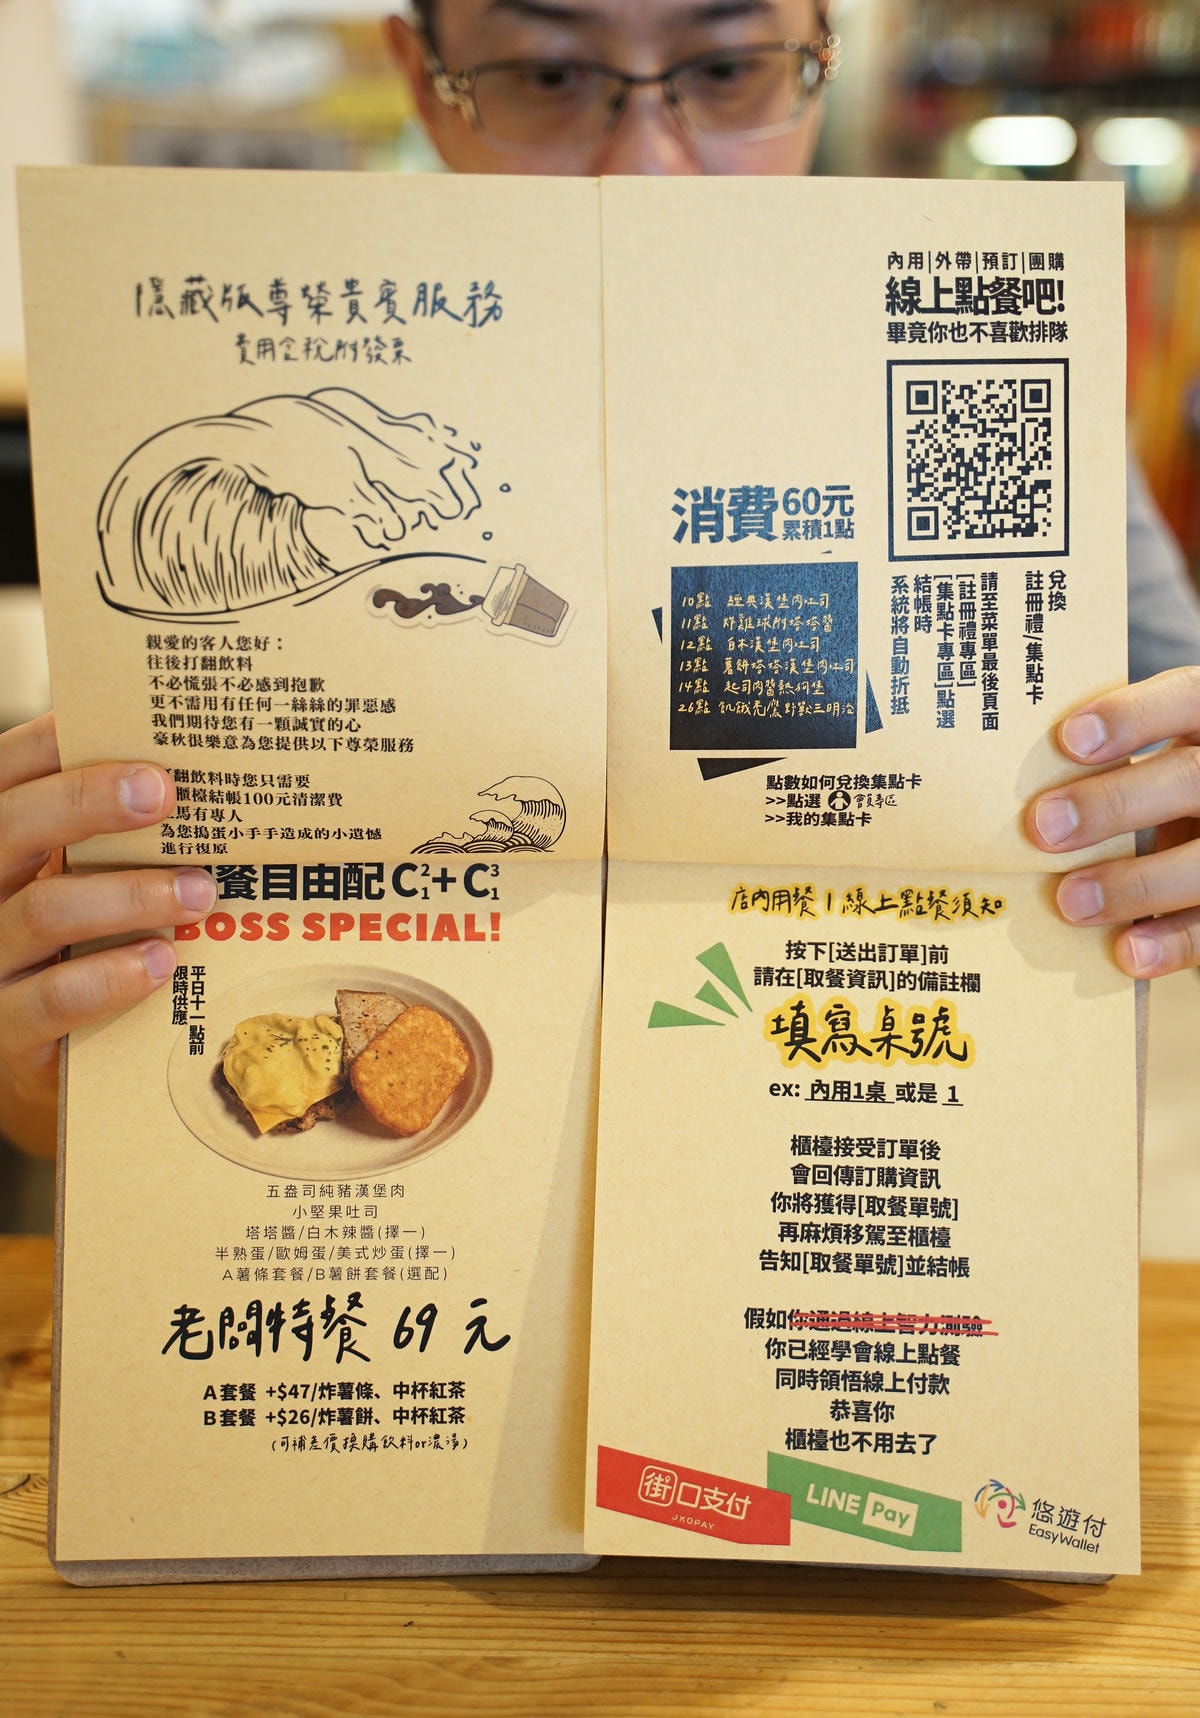 隱藏版尊榮貴賓服務
費用含稅附發票
親愛的客人您好：
往後打翻飲料
不必慌張不必感到抱歉
更不需用有任何一絲絲的罪惡感
我們期待您有一顆誠實的心
豪秋很樂意為您提供以下尊榮服務
翻飲料時您只需要
櫃檯結帳100元清潔費
馬有專人
為您搗蛋小手手造成的小遺憾
進行復原
內用|外帶|預訂|團購
線上點餐吧!
畢竟你也不喜歡排隊
消費60元
累積1點
10點 經典漢堡肉吐司
11點 炸雞球附塔塔醬
12點 白木漢堡肉吐司
13點 薯餅塔塔漢堡肉吐司
14點 起司肉醬熱狗堡
26點 飢餓禿鷹野獸三明治
兌換
註冊禮/集點卡
請至菜單最後頁面
[註冊禮專區]
[集點卡專區]點選
結帳時
系統將自動折抵
點數如何兌換集點卡
>>點選 會員專區
>>我的集點卡
餐自由配 C²₁+ C³₁
BOSS SPECIAL!
平日十一點前
限時供應
五盎司純豬漢堡肉
小堅果吐司
塔塔醬/白木辣醬(擇一)
半熟蛋/歐姆蛋/美式炒蛋(擇一)
A薯條套餐/B薯餅套餐(選配)
老闆特餐 69 元
A套餐 +$47/炸薯條、中杯紅茶
B套餐 +$26/炸薯餅、中杯紅茶
(可補差價換購飲料or濃湯)
店內用餐 | 線上點餐須知
按下[送出訂單]前
請在[取餐資訊]的備註欄
填寫桌號
ex: 內用1桌 或是 1
櫃檯接受訂單後
會回傳訂購資訊
你將獲得[取餐單號]
再麻煩移駕至櫃檯
告知[取餐單號]並結帳
假如你通過線上智力測驗
你已經學會線上點餐
同時領悟線上付款
恭喜你
櫃檯也不用去了
街口支付
JKOPAY
LINE Pay
悠遊付
EasyWallet